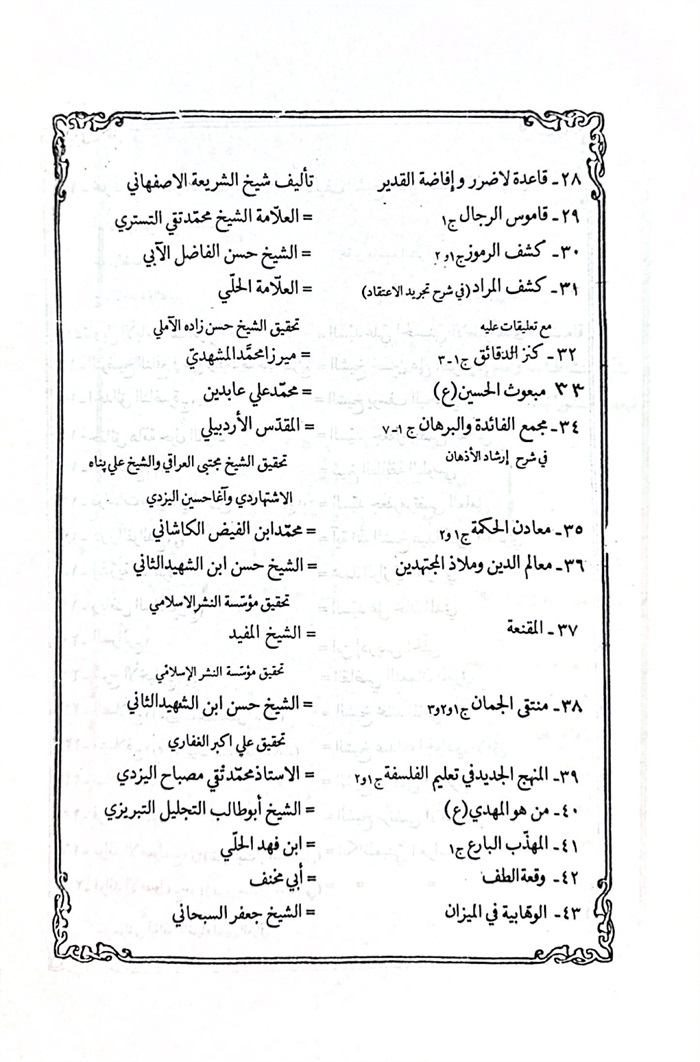 ٢٨ـ قاعدة لاضرر و إفاضة القدير تأليف شيخ الشريعة الاصفهاني
٢٩ـ قاموس الرجال ج١ = العلاّمة الشيخ محمّدتقي التستري
٣٠ـ كشف الرموز ج١و٢ = الشيخ حسن الفاضل الآبي
٣١ـ كشف المراد (في شرح تجريد الاعتقاد) = العلاّمة الحلّي
مع تعليقات عليه تحقيق الشيخ حسن زاده الآملي
٣٢ـ كنز الدقائق ج١ـ٣ = ميرزا محمّد المشهديّ
٣٣ مبعوث الحسين (ع) = محمّدعلي عابدين
٣٤ـ مجمع الفائدة والبرهان ج١ـ٧ = المقدّس الأردبيلي
في شرح إرشاد الأذهان تحقيق الشيخ مجتبى العراقي والشيخ علي پناه
الاشتهاردي وآغاحسين اليزدي
٣٥ـ معادن الحكمة ج١و٢ = محمّد ابن الفيض الكاشاني
٣٦ـ معالم الدين وملاذ المجتهدين = الشيخ حسن ابن الشهيدالثاني
تحقيق مؤسّسة النشرالاسلامي
٣٧ـ المقنعة = الشيخ المفيد
تحقيق مؤسّسة النشر الإسلامي
٣٨ـ منتقى الجمان ج١و٢و٣ = الشيخ حسن ابن الشهيدالثاني
تحقيق علي اكبر الغفاري
٣٩ـ المنهج الجديدفي تعليم الفلسفة ج١و٢ = الاستاذ محمّد تقي مصباح اليزدي
٤٠ـ من هو المهدي (ع) = الشيخ أبوطالب التجليل التبريزي
٤١ـ المهذّب البارع ج١ = ابن فهد الحلّي
٤٢ـ وقعة الطف = أبي مخنف
٤٣ـ الوهّابية في الميزان = الشيخ جعفر السبحاني